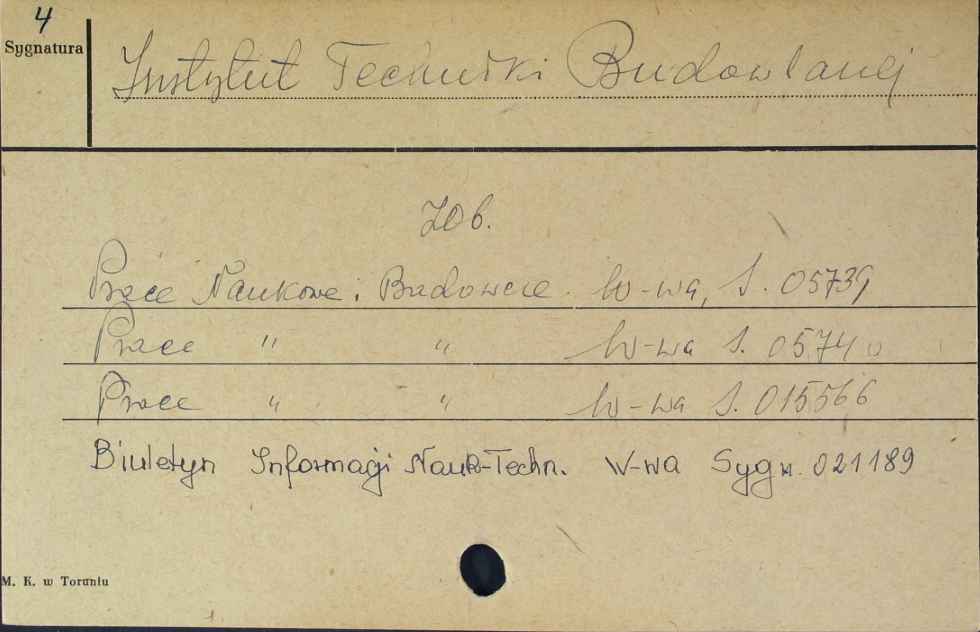 4
Sygnatura
Instytut Techniki Budowlanej
Zob.
Prace Naukowe i Badawcze. W-wa, S. 05739
Prace " " W-wa S. 05740
Prace " " W-wa S. 015566
Biuletyn Informacji Nauk-Techn. W-wa Sygn. 021189
M. K. w Toruniu